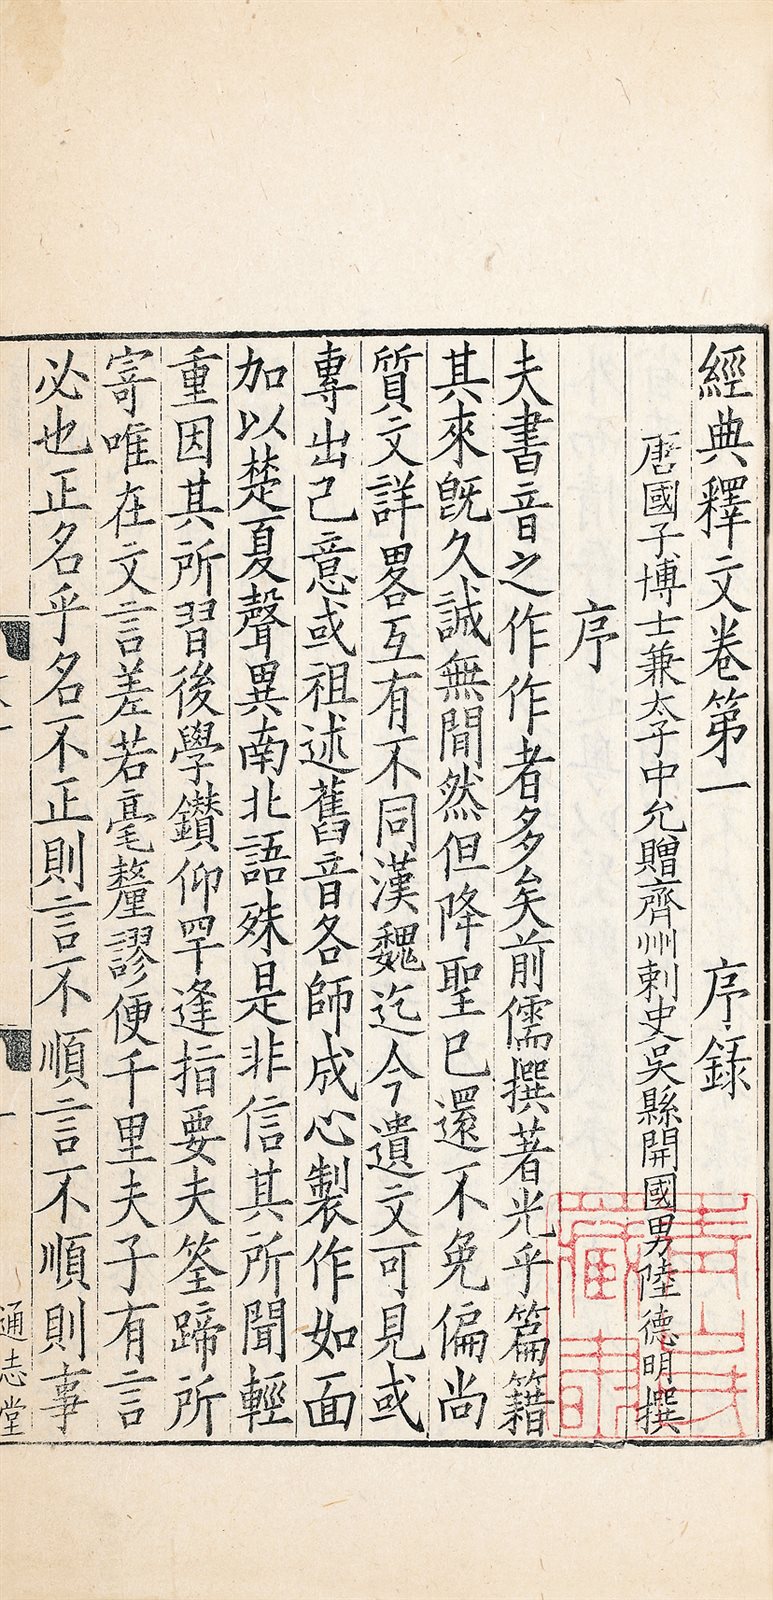 經典釋文卷第一　　序錄
唐國子博士兼太子中允贈齊州刺史吳縣開國男陸德明撰
序
夫書音之作作者多矣前儒撰著光乎篇籍
其來旣久誠無閒然但降聖已還不免偏尚
質文詳畧互有不同漢魏迄今遺文可見或
專出己意或祖述舊音各師成心製作如面
加以楚夏聲異南北語殊是非信其所聞輕
重因其所習後學鑽仰罕逢指要夫筌蹄所
寄唯在文言差若毫釐謬便千里夫子有言
必也正名乎名不正則言不順言不順則事
通志堂